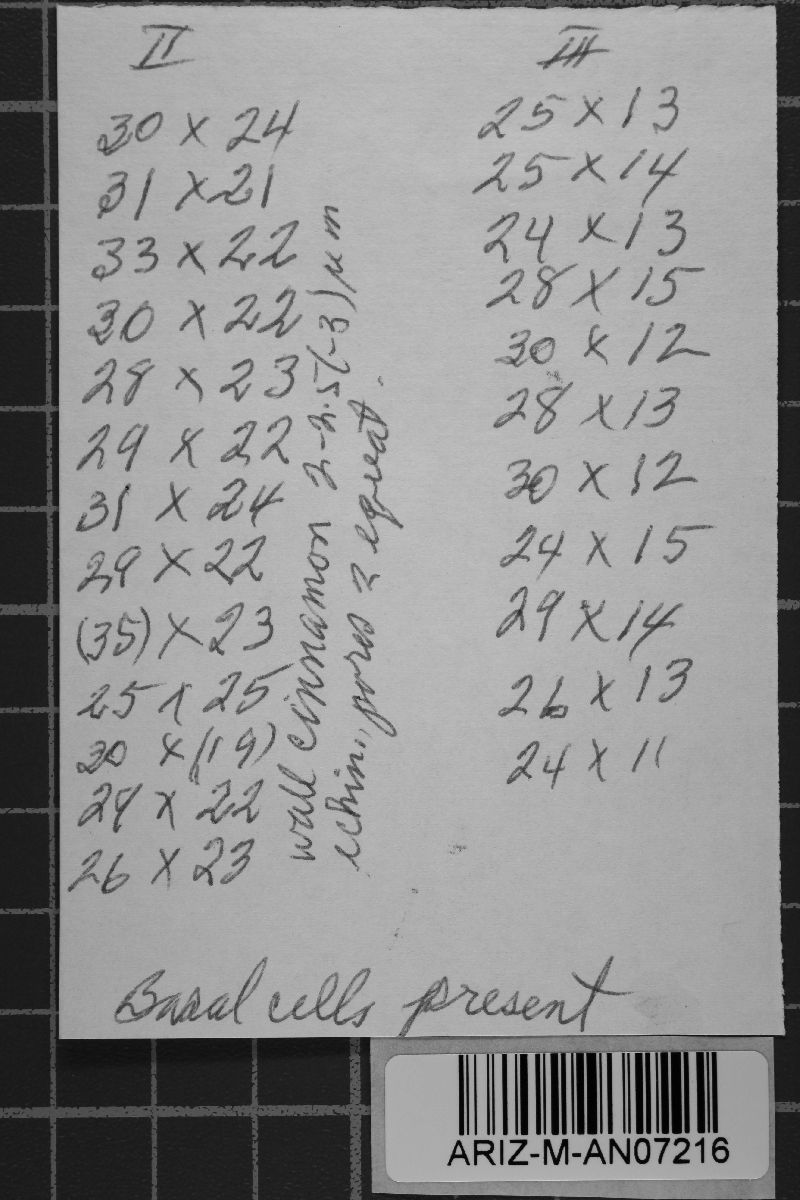 II
30 x 24
31 x 21
33 x 22
30 x 22
28 x 23
29 x 22
31 x 24
29 x 22
(35) x 23
25 x 25
30 x (19)
29 x 22
26 x 23
wall cinnamon 2-2.5(-3) μm
echin., pores 2 equat.
III
25 x 13
25 x 14
24 x 13
28 x 15
30 x 12
28 x 13
30 x 12
24 x 15
29 x 14
26 x 13
24 x 11
Basal cells present
ARIZ-M-AN07216